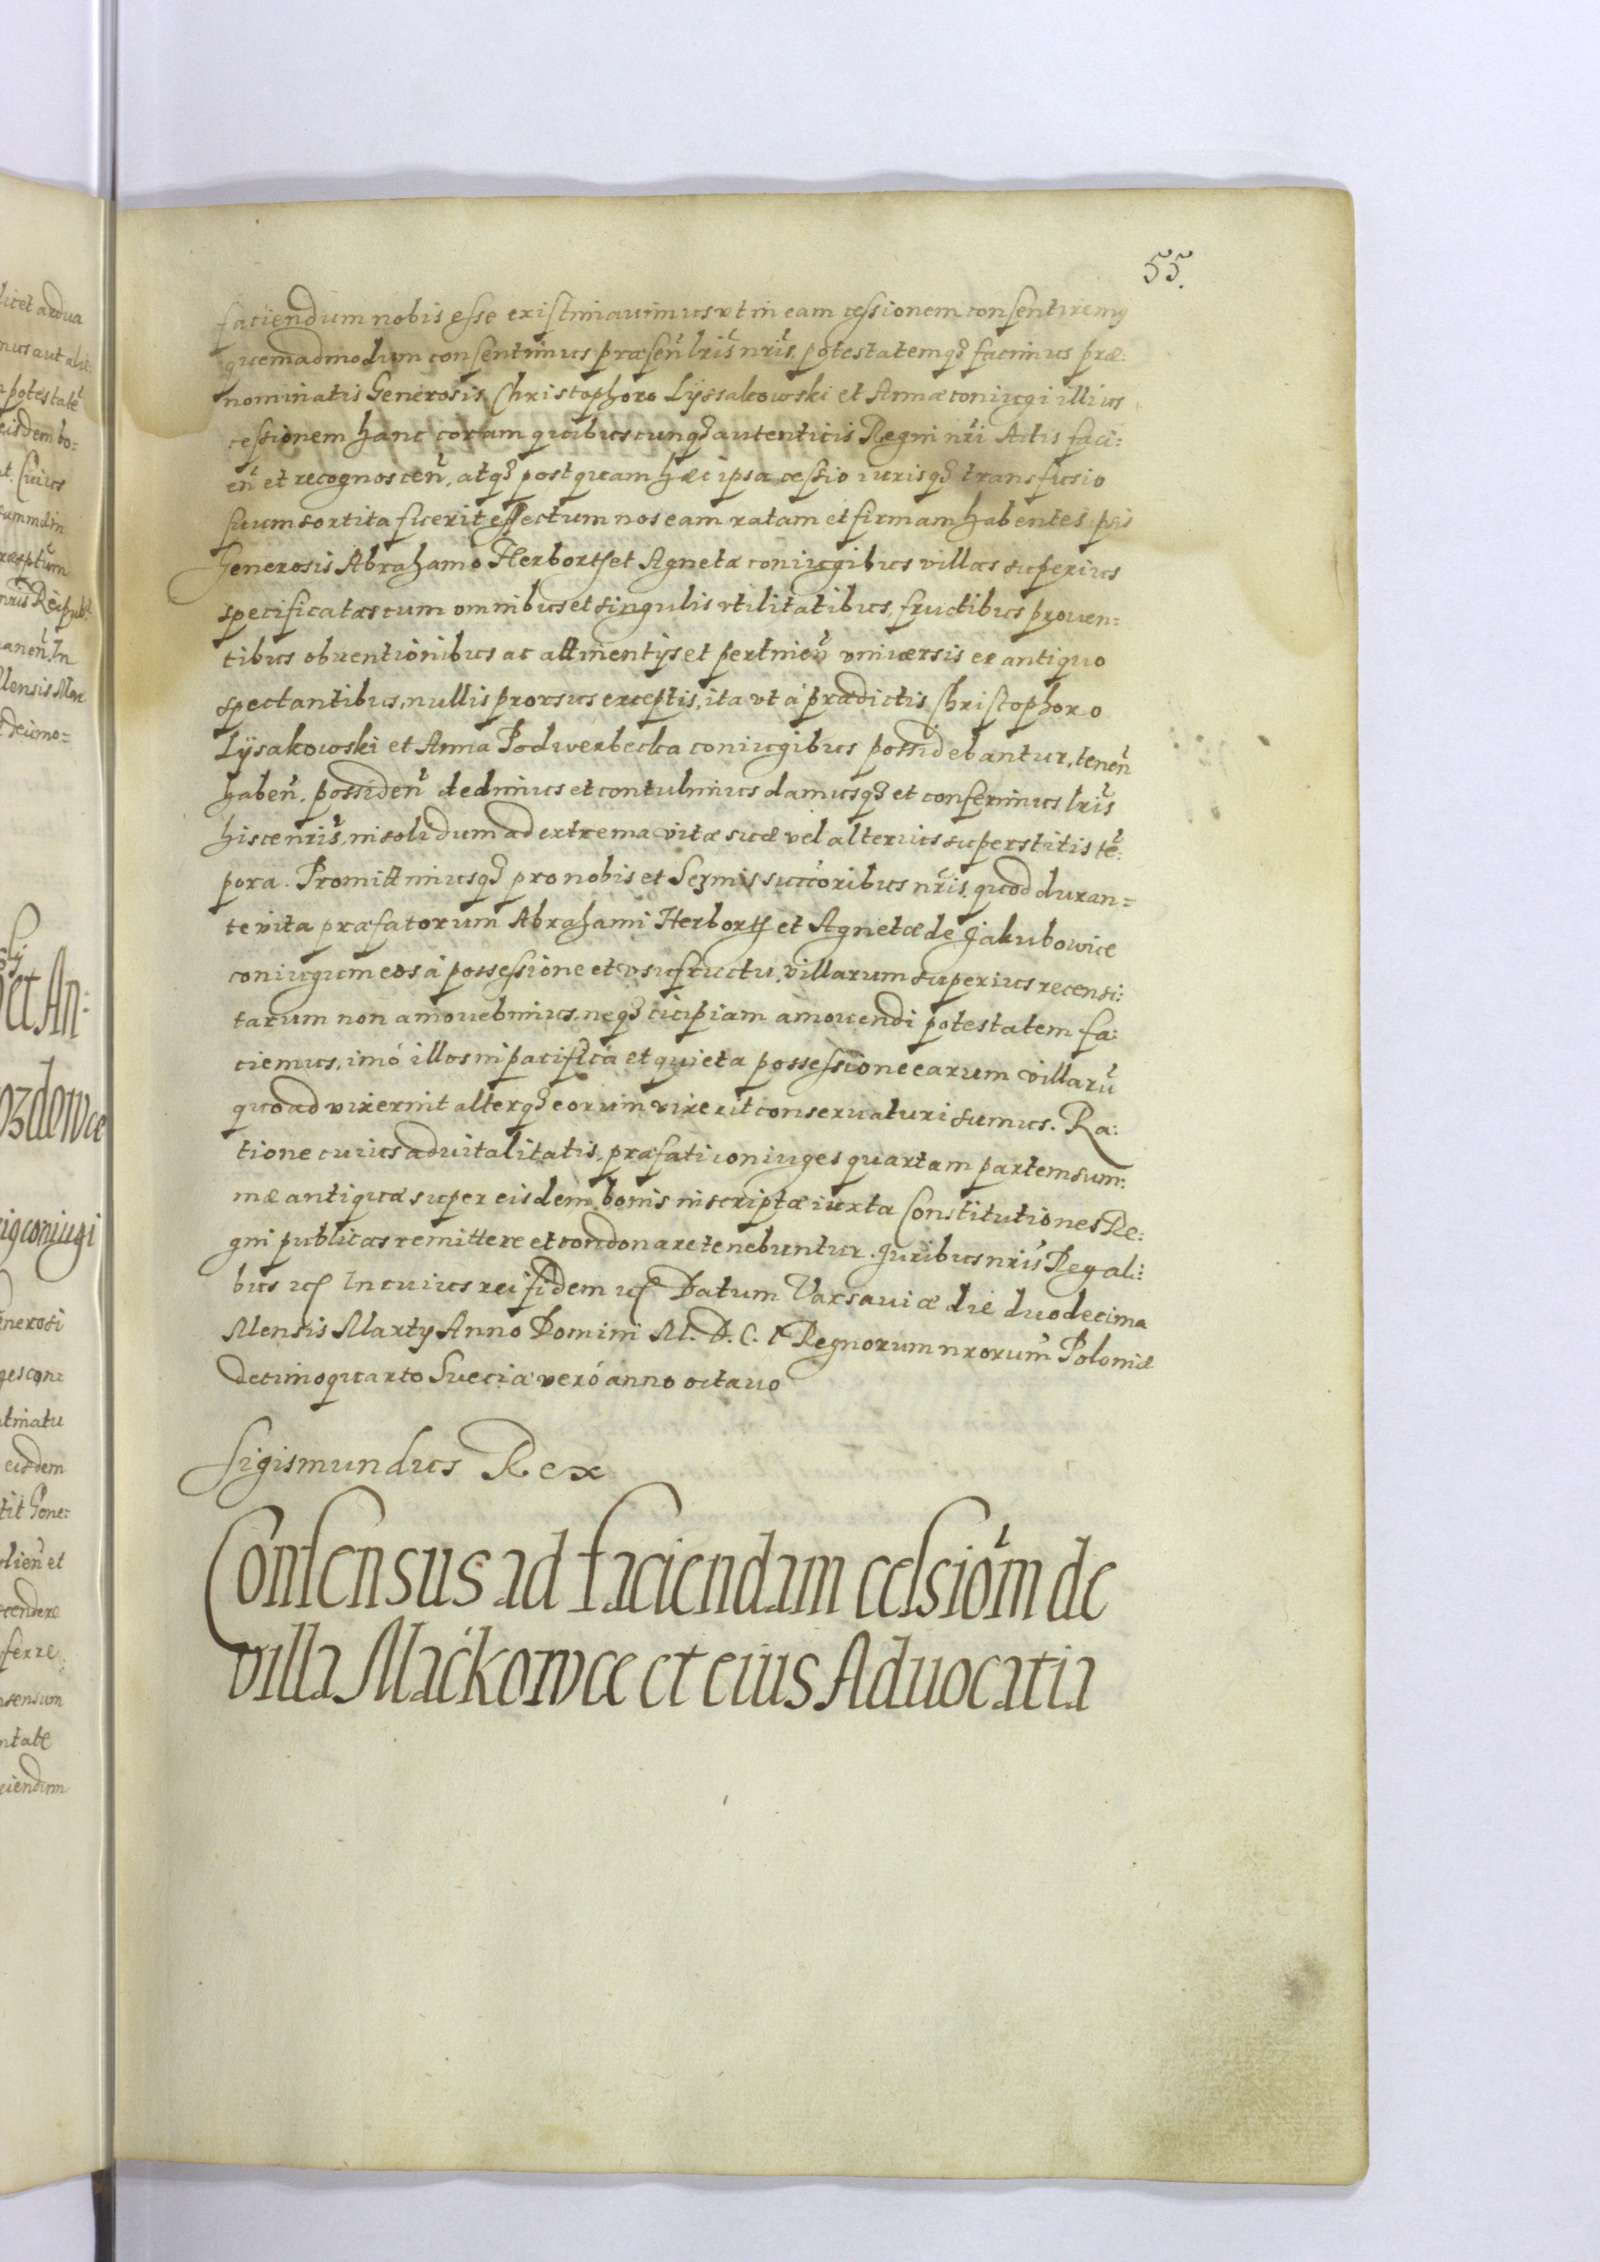 55.
faciendum nobis esse existimauimus vt in eam cessionem consentiremus
quemadmodum consentimus præsen̄ lrīs nrīs, potestatemqʒ facimus præ:
nominatis Generosis Christophoro Lyssakowski et Annæ coniugi illius
cessionem hanc coram quibuscunqʒ autenticis Regni nrī Actis faci:
en̄ et recognoscen̄, atqʒ postquam hæc ipsa cessio iurisqʒ transfusio
suum sortita fuerit effectum nos eam ratam et firmam habentes
Generosis Abrahamo Herborth et Agnetæ coniugibus villas superius
specificatas cum omnibus et singulis vtilitatibus, fructibus prouen=
tibus obuentionibus ac attinentijs et pertinen̄ vniuersis ex antiquo
spectantibus, nullis prorsus exceptis, ita vt á prædictis Christophoro
Lysakowski et Anna Podwerbecka coniugibus possidebantur, tenen̄
haben̄, possiden̄ dedimus et contulimus damusqʒ et conferimus lrīs
hisce nrīs, in solidum ad extrema vitæ suæ vel alterius superstitis tē:
pora. Promittimusqʒ pro nobis et Sermis succoribus nrīs, quod duran=
te vita præfatorum Abrahami Herborth et Agnetæ de Jakubowice
coniugum eos á possessione et vsufructu villarum superius recensi:
tarum non amouebimus, neqʒ cuipiam amouendi potestatem fa:
ciemus, imó illos in pacifica et quieta possessione earum villarū
quoad vixerint alterqʒ eorum vixerit conseruaturi sumus. Ra:
tione cuius aduitalitatis, præfati coniuges quartam partem sum:
mæ antiquæ super eisdem bonis inscriptæ iuxta Constitutiones Re:
gni publicas remittere et condonare tenebuntur. Juribus nrīs Regali:
bus etc In cuius rei fidem etc Datum Varsauiæ die duodecima
Mensis Martij Anno Domini M. D. C. I Regnorum nrorum Poloniæ
decimoquarto Sueciæ veró anno octauo
Sigismundus Rex
Consensus ad faciendam cessiōm de
villa Maćkowce et eius Aduocatia